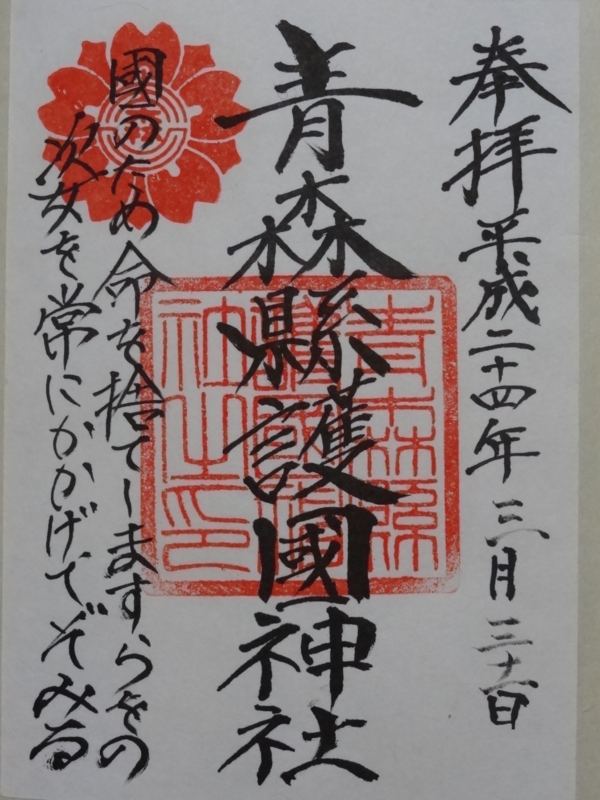 奉拝 平成二十四年 三月 三十一日
青森縣護國神社
國のため命を捨てしますらをの
を常にかかげてぞみる
青森縣
護國神
社之印